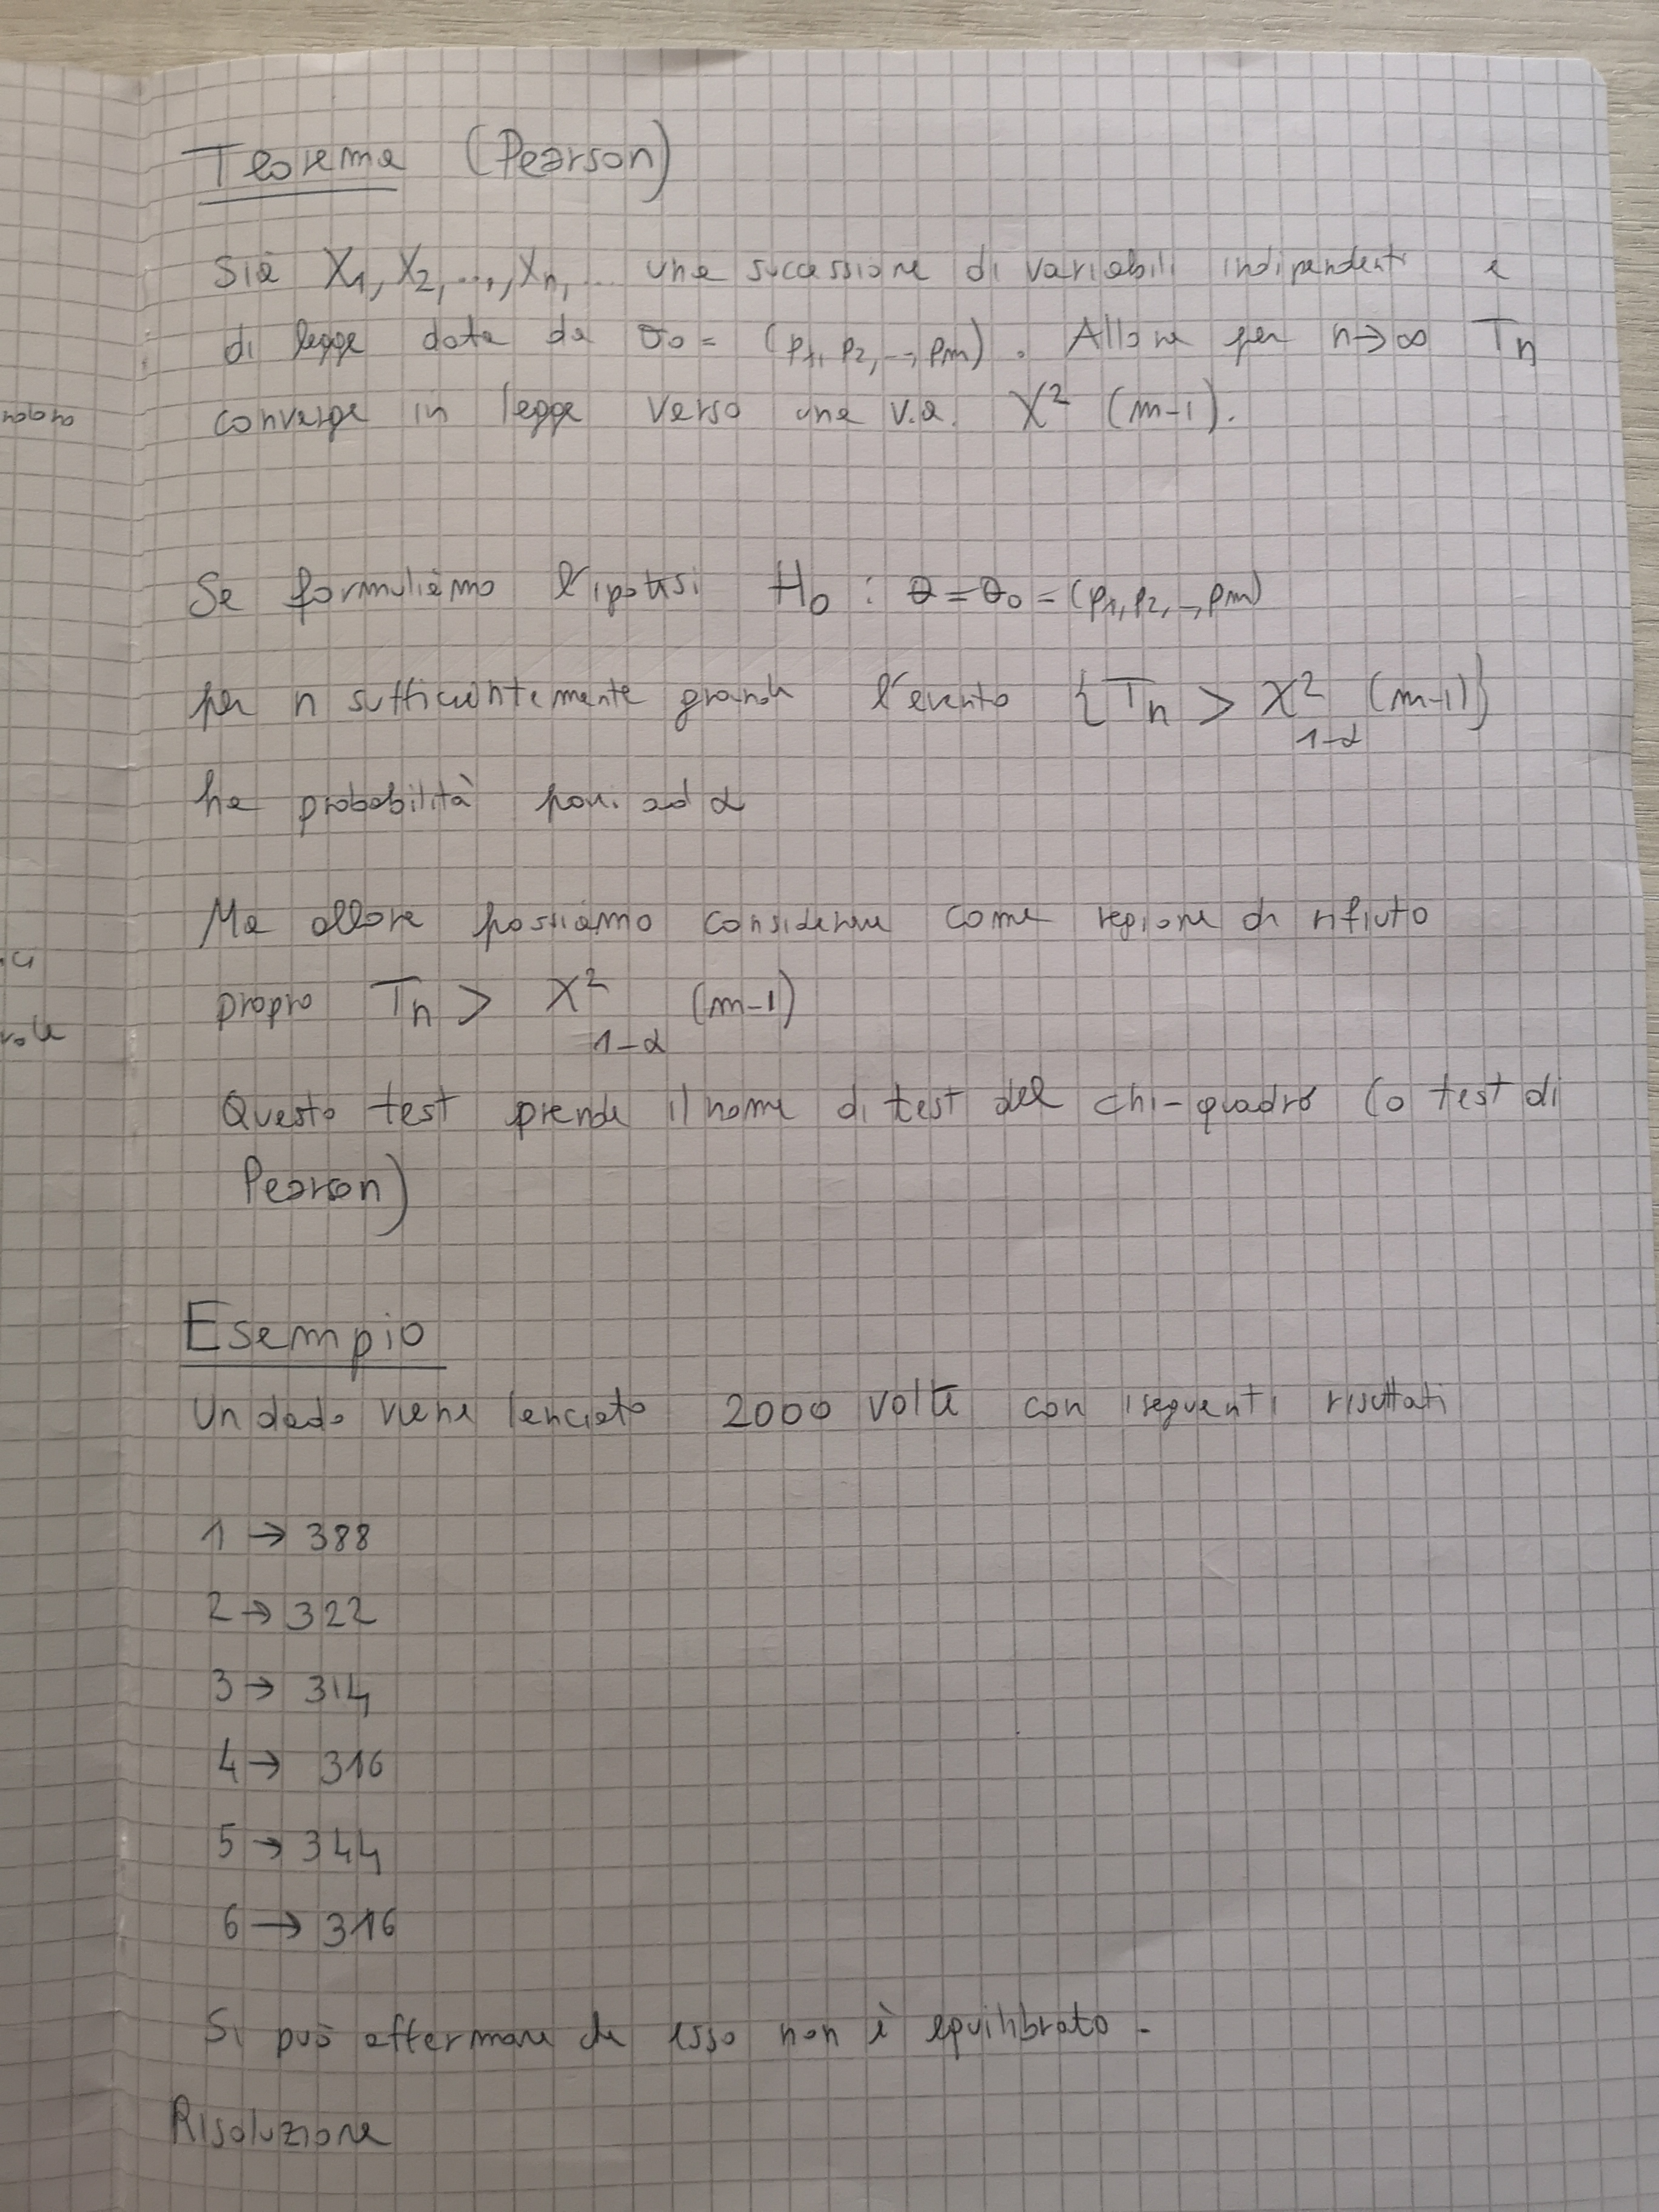 Teorema (Pearson)
Sia X1, X2, ..., Xn, ... una successione di variabili indipendenti e
di legge data da θ0 = (p1, p2, .., pm). Allora per n→∞ Tn
converge in legge verso una v.a. χ² (m-1).
Se formuliamo l'ipotesi H0 : θ = θ0 = (p1, p2, .., pm)
per n sufficientemente grande l'evento {Tn > χ²1-α (m-1)}
ha probabilità pari ad α
Ma allora possiamo considerare come regione di rifiuto
propro Tn > χ²1-α (m-1)
Questo test prende il nome di test del chi-quadro (o test di
Pearson)
Esempio
Un dado viene lanciato 2000 volte con i seguenti risultati
1 → 388
2 → 322
3 → 314
4 → 316
5 → 344
6 → 316
Si può affermare che esso non è equilibrato.
Risoluzione